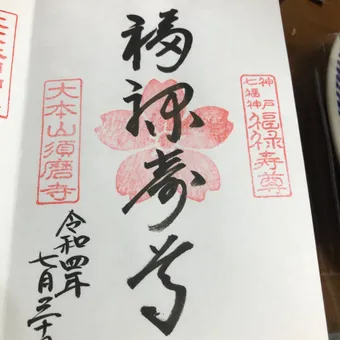 神戸
七福神
福禄寿尊
福禄寿尊
大本山須磨寺
令和四年
七月三十日